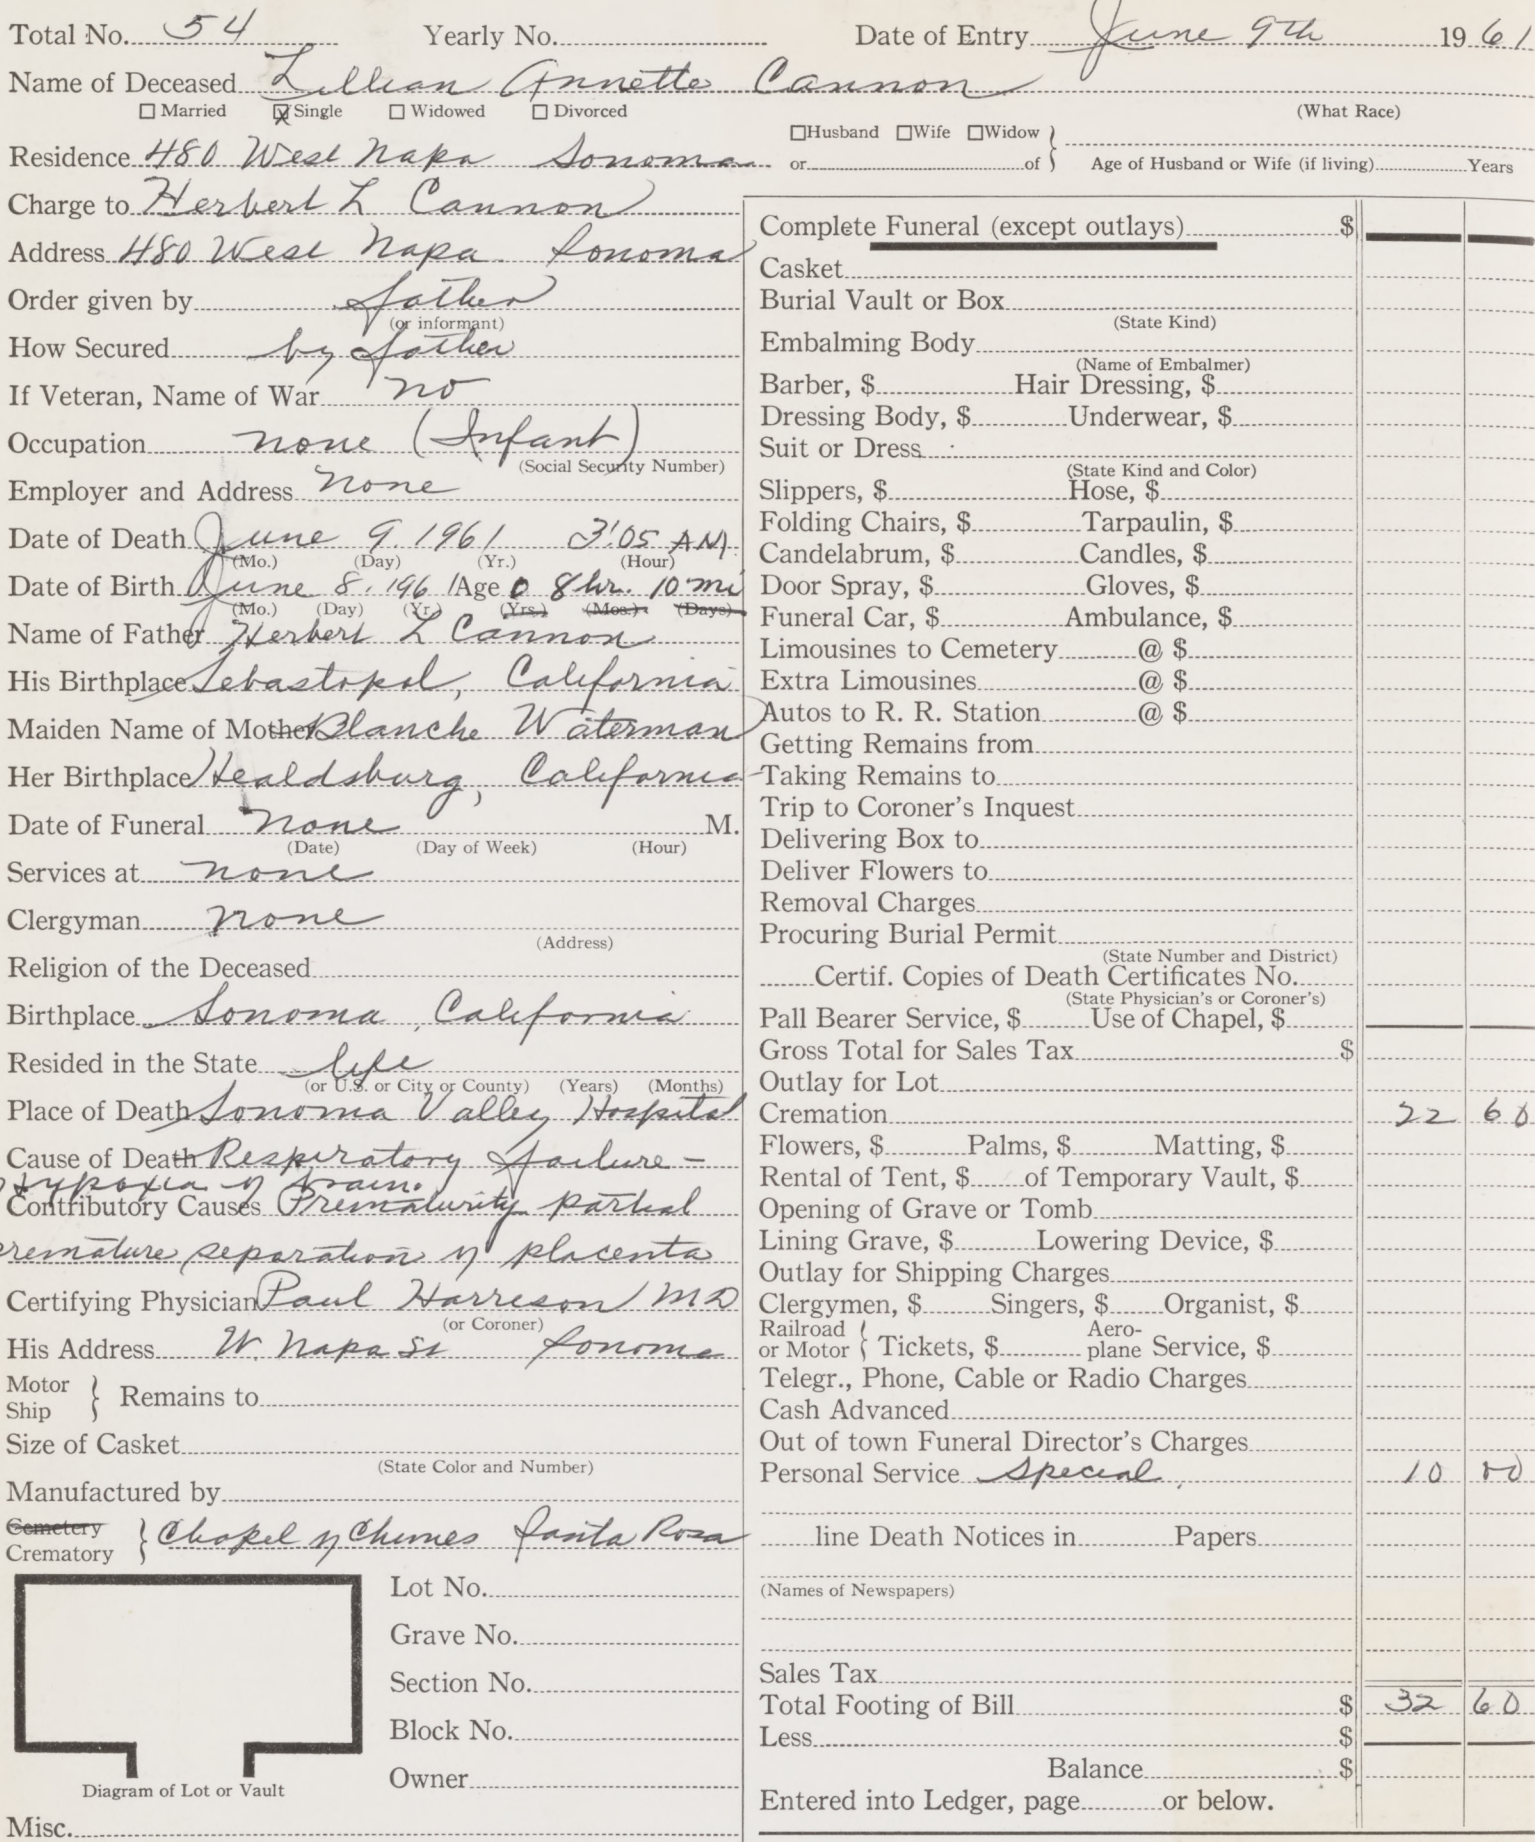 Total No. 54 Yearly No. Date of Entry June 9th 1961
Name of Deceased Lillian Annette Cannon
☐ Married ☒ Single ☐ Widowed ☐ Divorced (What Race)
☐ Husband ☐ Wife ☐ Widow }
Residence 480 West Napa Sonoma or of } Age of Husband or Wife (if living) Years
Charge to Herbert L Cannon
Address 480 West Napa Sonoma
Order given by father
(or informant)
How Secured by father
If Veteran, Name of War no
Occupation none (Infant)
(Social Security Number)
Employer and Address none
Date of Death June 9. 1961 3:05 AM.
(Mo.) (Day) (Yr.) (Hour)
Date of Birth June 8. 1961 Age 0 8 hr. 10 mi
(Mo.) (Day) (Yr.) (Yrs.) (Mos.) (Days)
Name of Father Herbert L Cannon
His Birthplace Sebastopol, California
Maiden Name of Mother Blanche Waterman
Her Birthplace Healdsburg, California
Date of Funeral none M.
(Date) (Day of Week) (Hour)
Services at none
Clergyman none
(Address)
Religion of the Deceased
Birthplace Sonoma, California
Resided in the State life
(or U.S. or City or County) (Years) (Months)
Place of Death Sonoma Valley Hospital
Cause of Death Respiratory failure –
Hypoxia of brain.
Contributory Causes Prematurity partial
premature separation of placenta
Certifying Physician Paul Harreson MD
(or Coroner)
His Address W. Napa St Sonoma
Motor
Ship } Remains to
Size of Casket
(State Color and Number)
Manufactured by
Cemetery
Crematory } Chapel of Chimes Santa Rosa
Lot No.
Grave No.
Section No.
Block No.
Owner
Diagram of Lot or Vault
Misc.
Complete Funeral (except outlays) $
Casket
Burial Vault or Box
(State Kind)
Embalming Body
(Name of Embalmer)
Barber, $ Hair Dressing, $
Dressing Body, $ Underwear, $
Suit or Dress
(State Kind and Color)
Slippers, $ Hose, $
Folding Chairs, $ Tarpaulin, $
Candelabrum, $ Candles, $
Door Spray, $ Gloves, $
Funeral Car, $ Ambulance, $
Limousines to Cemetery @ $
Extra Limousines @ $
Autos to R. R. Station @ $
Getting Remains from
Taking Remains to
Trip to Coroner's Inquest
Delivering Box to
Deliver Flowers to
Removal Charges
Procuring Burial Permit
(State Number and District)
Certif. Copies of Death Certificates No.
(State Physician's or Coroner's)
Pall Bearer Service, $ Use of Chapel, $
Gross Total for Sales Tax $
Outlay for Lot
Cremation 22 60
Flowers, $ Palms, $ Matting, $
Rental of Tent, $ of Temporary Vault, $
Opening of Grave or Tomb
Lining Grave, $ Lowering Device, $
Outlay for Shipping Charges
Clergymen, $ Singers, $ Organist, $
Railroad
or Motor } Tickets, $ Aero-
plane Service, $
Telegr., Phone, Cable or Radio Charges
Cash Advanced
Out of town Funeral Director's Charges
Personal Service Special 10 00
line Death Notices in Papers
(Names of Newspapers)
Sales Tax
Total Footing of Bill $ 32 60
Less $
Balance $
Entered into Ledger, page or below.